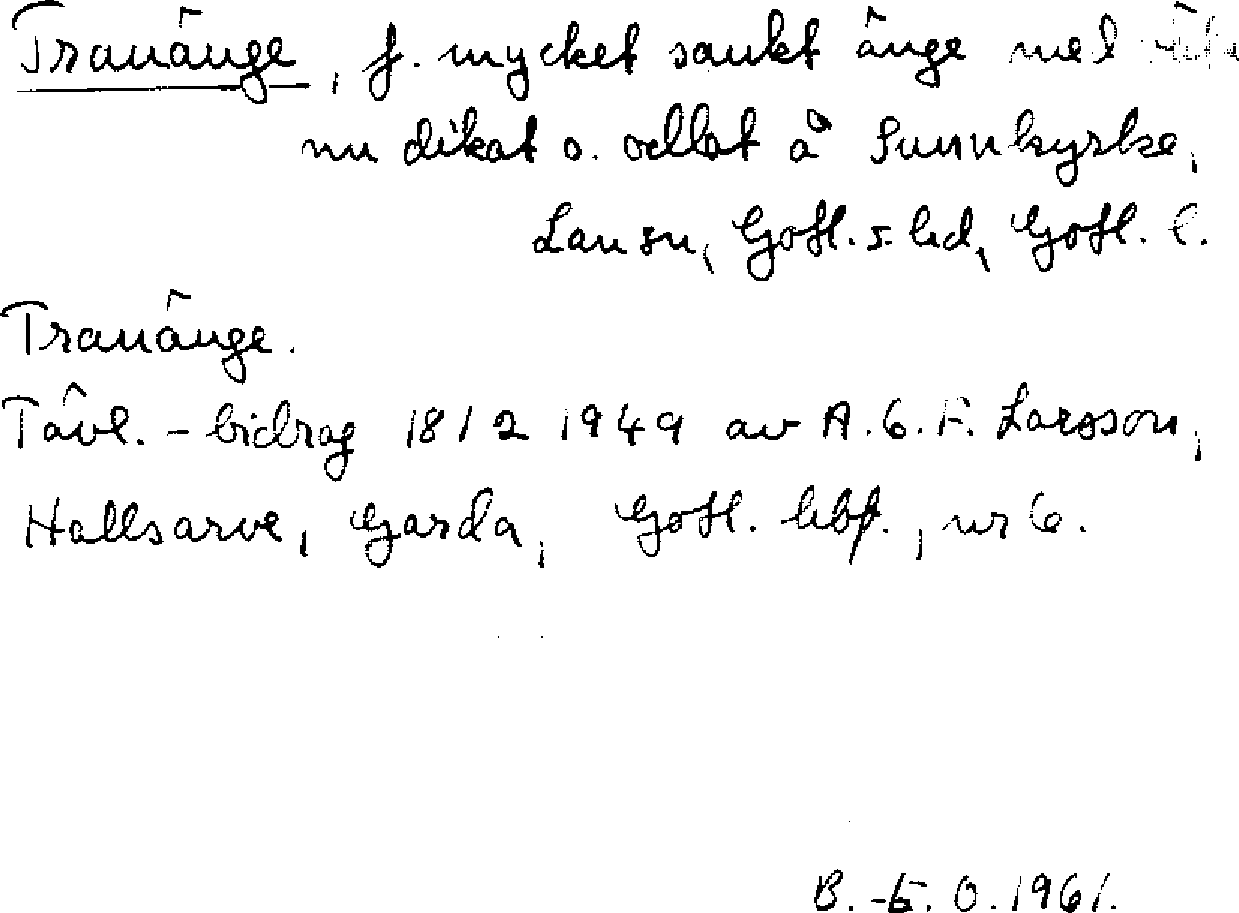 Tranänge, f. mycket sankt änge med
nu dikat o. odlat å Sunnkyrke,
Lau sn, Gotl. s. hd, Gotl. l.
Tranänge.
Tävl.-bidrag 18/2 1949 av A.G.F. Larsson,
Hallsarve, Garda, Gotl. hbf., nr 6.
B.-E. O. 1961.